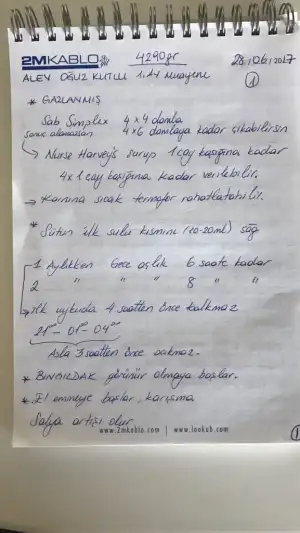 2MKABLO
4290gr
28/06/2017
ALEV OĞUZ KUTLU 1. Ay Muayene
1
* GAZLANMIŞ
Sab Simplex 4x4 damla
sonuç alamazsan 4x6 damlaya kadar çıkabilirsin
→ Nurse Harvey's şurup 1 çay kaşığına kadar
4x1 çay kaşığına kadar verilebilir.
→ Karnına sıcak termofor rahatlatabilir.
* Sütün ilk sulu kısmını (10-20ml) sağ
1 Aylıkken Gece açlık 6 saate kadar
2 " " " 8 " "
→ ilk uykuda 4 saatten önce kalkmaz
21 - 01 - 04
Asla 3 saatten önce bakmaz.
* BINGILDAK görünür olmaya başlar.
* El emmeye başlar, karışma
Salya artışı olur
www.2mkablo.com | www.lookub.com
1